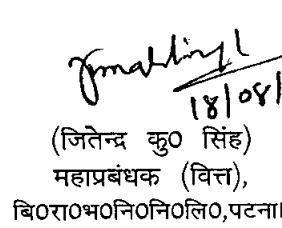 18/08/
(जितेन्द्र कु0 सिंह)
महाप्रबंधक (वित्त),
बि0रा0भ0नि0नि0लि0,पटना।